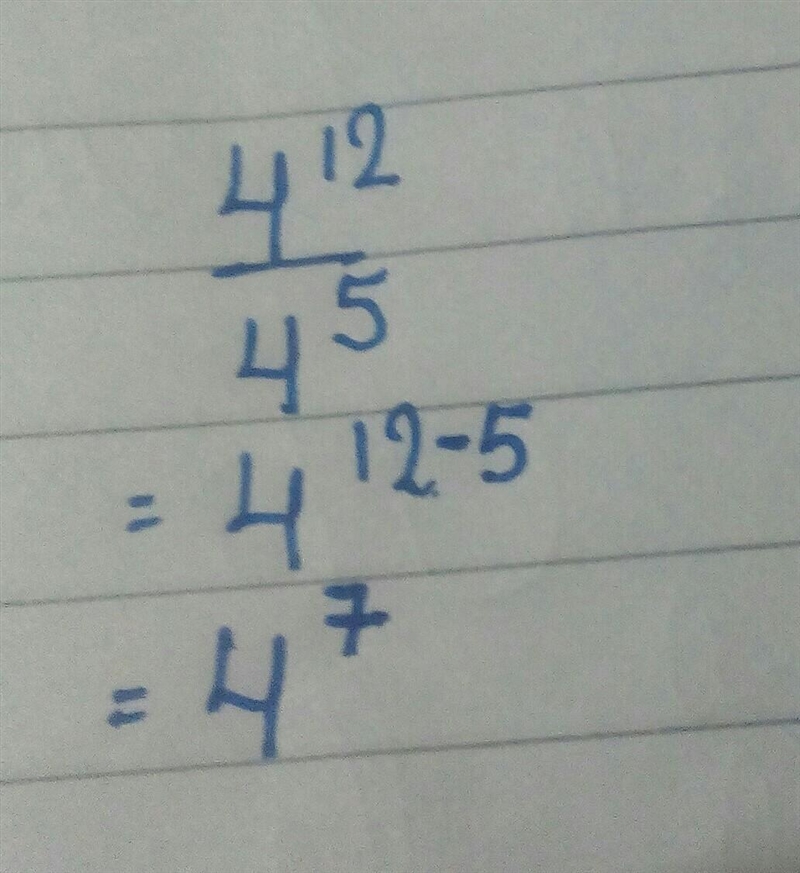 4¹²
4⁵
= 4¹²⁻⁵
= 4⁷